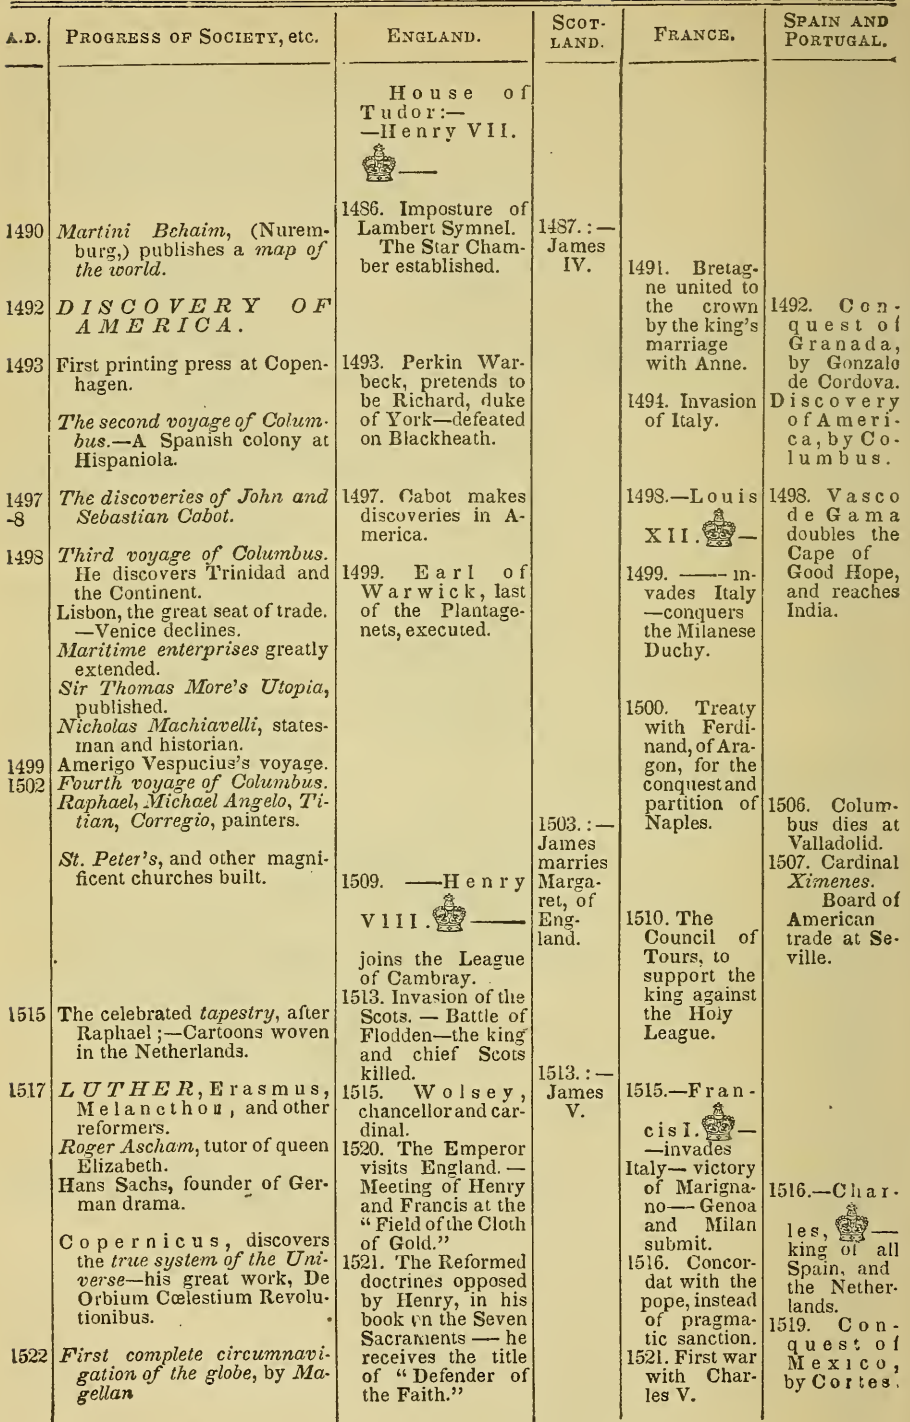 A.D.
PROGRESS OF SOCIETY, etc.
ENGLAND.
SCOT-
LAND.
FRANCE.
SPAIN AND
PORTUGAL.
1490 Martini Behaim, (Nurem-
burg,) publishes a map of
the world.
1492 DISCOVERY OF
AMERICA.
1493 First printing press at Copen-
hagen.
The second voyage of Colum-
bus.—A Spanish colony at
Hispaniola.
1497
-8
The discoveries of John and
Sebastian Cabot.
1498 Third voyage of Columbus.
He discovers Trinidad and
the Continent.
Lisbon, the great seat of trade.
—Venice declines.
Maritime enterprises greatly
extended.
Sir Thomas More's Utopia,
published.
Nicholas Machiavelli, states-
man and historian.
1499 Amerigo Vespucius's voyage.
1502 Fourth voyage of Columbus.
Raphael, Michael Angelo, Ti-
tian, Corregio, painters.
St. Peter's, and other magni-
ficent churches built.
1515 The celebrated tapestry, after
Raphael;—Cartoons woven
in the Netherlands.
1517 LUTHER, Erasmus,
Melancthon, and other
reformers.
Roger Ascham, tutor of queen
Elizabeth.
Hans Sachs, founder of Ger-
man drama.
Copernicus, discovers
the true system of the Uni-
verse—his great work, De
Orbium Cœlestium Revolu-
tionibus.
1522 First complete circumnavi-
gation of the globe, by Ma-
gellan
House of
Tudor:—
—Henry VII.
—
1486. Imposture of
Lambert Symnel.
The Star Cham-
ber established.
1493. Perkin War-
beck, pretends to
be Richard, duke
of York—defeated
on Blackheath.
1497. Cabot makes
discoveries in A-
merica.
1499. Earl of
Warwick, last
of the Plantage-
nets, executed.
1509. —Henry
VIII. —
joins the League
of Cambray.
1513. Invasion of the
Scots. — Battle of
Flodden—the king
and chief Scots
killed.
1515. Wolsey,
chancellor and car-
dinal.
1520. The Emperor
visits England. —
Meeting of Henry
and Francis at the
"Field of the Cloth
of Gold."
1521. The Reformed
doctrines opposed
by Henry, in his
book on the Seven
Sacraments — he
receives the title
of "Defender of
the Faith."
1487. : —
James
IV.
1503. : —
James
marries
Marga-
ret, of
Eng-
land.
1513. : —
James
V.
1491. Bretag-
ne united to
the crown
by the king's
marriage
with Anne.
1494. Invasion
of Italy.
1498.—Louis
XII. —
1499. —— in-
vades Italy
—conquers
the Milanese
Duchy.
1500. Treaty
with Ferdi-
nand, of Ara-
gon, for the
conquest and
partition of
Naples.
1510. The
Council of
Tours, to
support the
king against
the Holy
League.
1515.—Fran-
cis I. —
—invades
Italy— victory
of Marigna-
no—- Genoa
and Milan
submit.
1516. Concor-
dat with the
pope, instead
of pragma-
tic sanction.
1521. First war
with Char-
les V.
1492. Con-
quest of
Granada,
by Gonzalo
de Cordova.
Discovery
of Ameri-
ca, by Co-
lumbus.
1498. Vasco
de Gama
doubles the
Cape of
Good Hope,
and reaches
India.
1506. Colum-
bus dies at
Valladolid.
1507. Cardinal
Ximenes.
Board of
American
trade at Se-
ville.
1516.—Char-
les, —
king of all
Spain, and
the Nether-
lands.
1519. Con-
quest of
Mexico,
by Cortes.